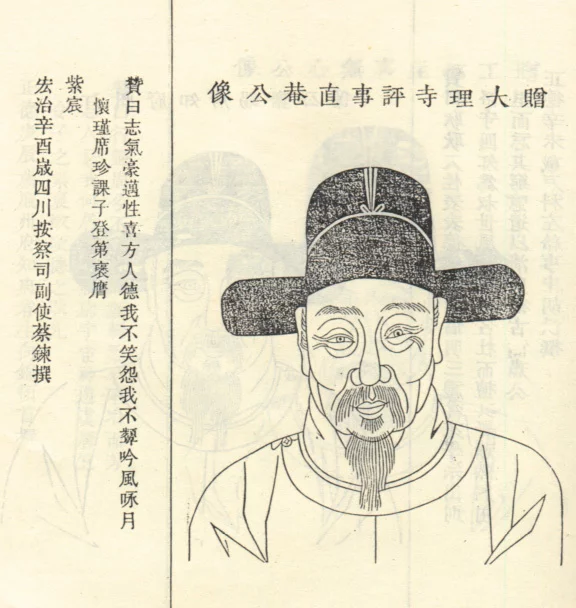 贈大理寺評事直巷公像
贊曰志氣豪邁性喜方人德我不笑怨我不顰吟風咏月
懷瑾席珍課子登第褒膺
紫宸
宏治辛酉歲四川按察司副使蔡鍊撰